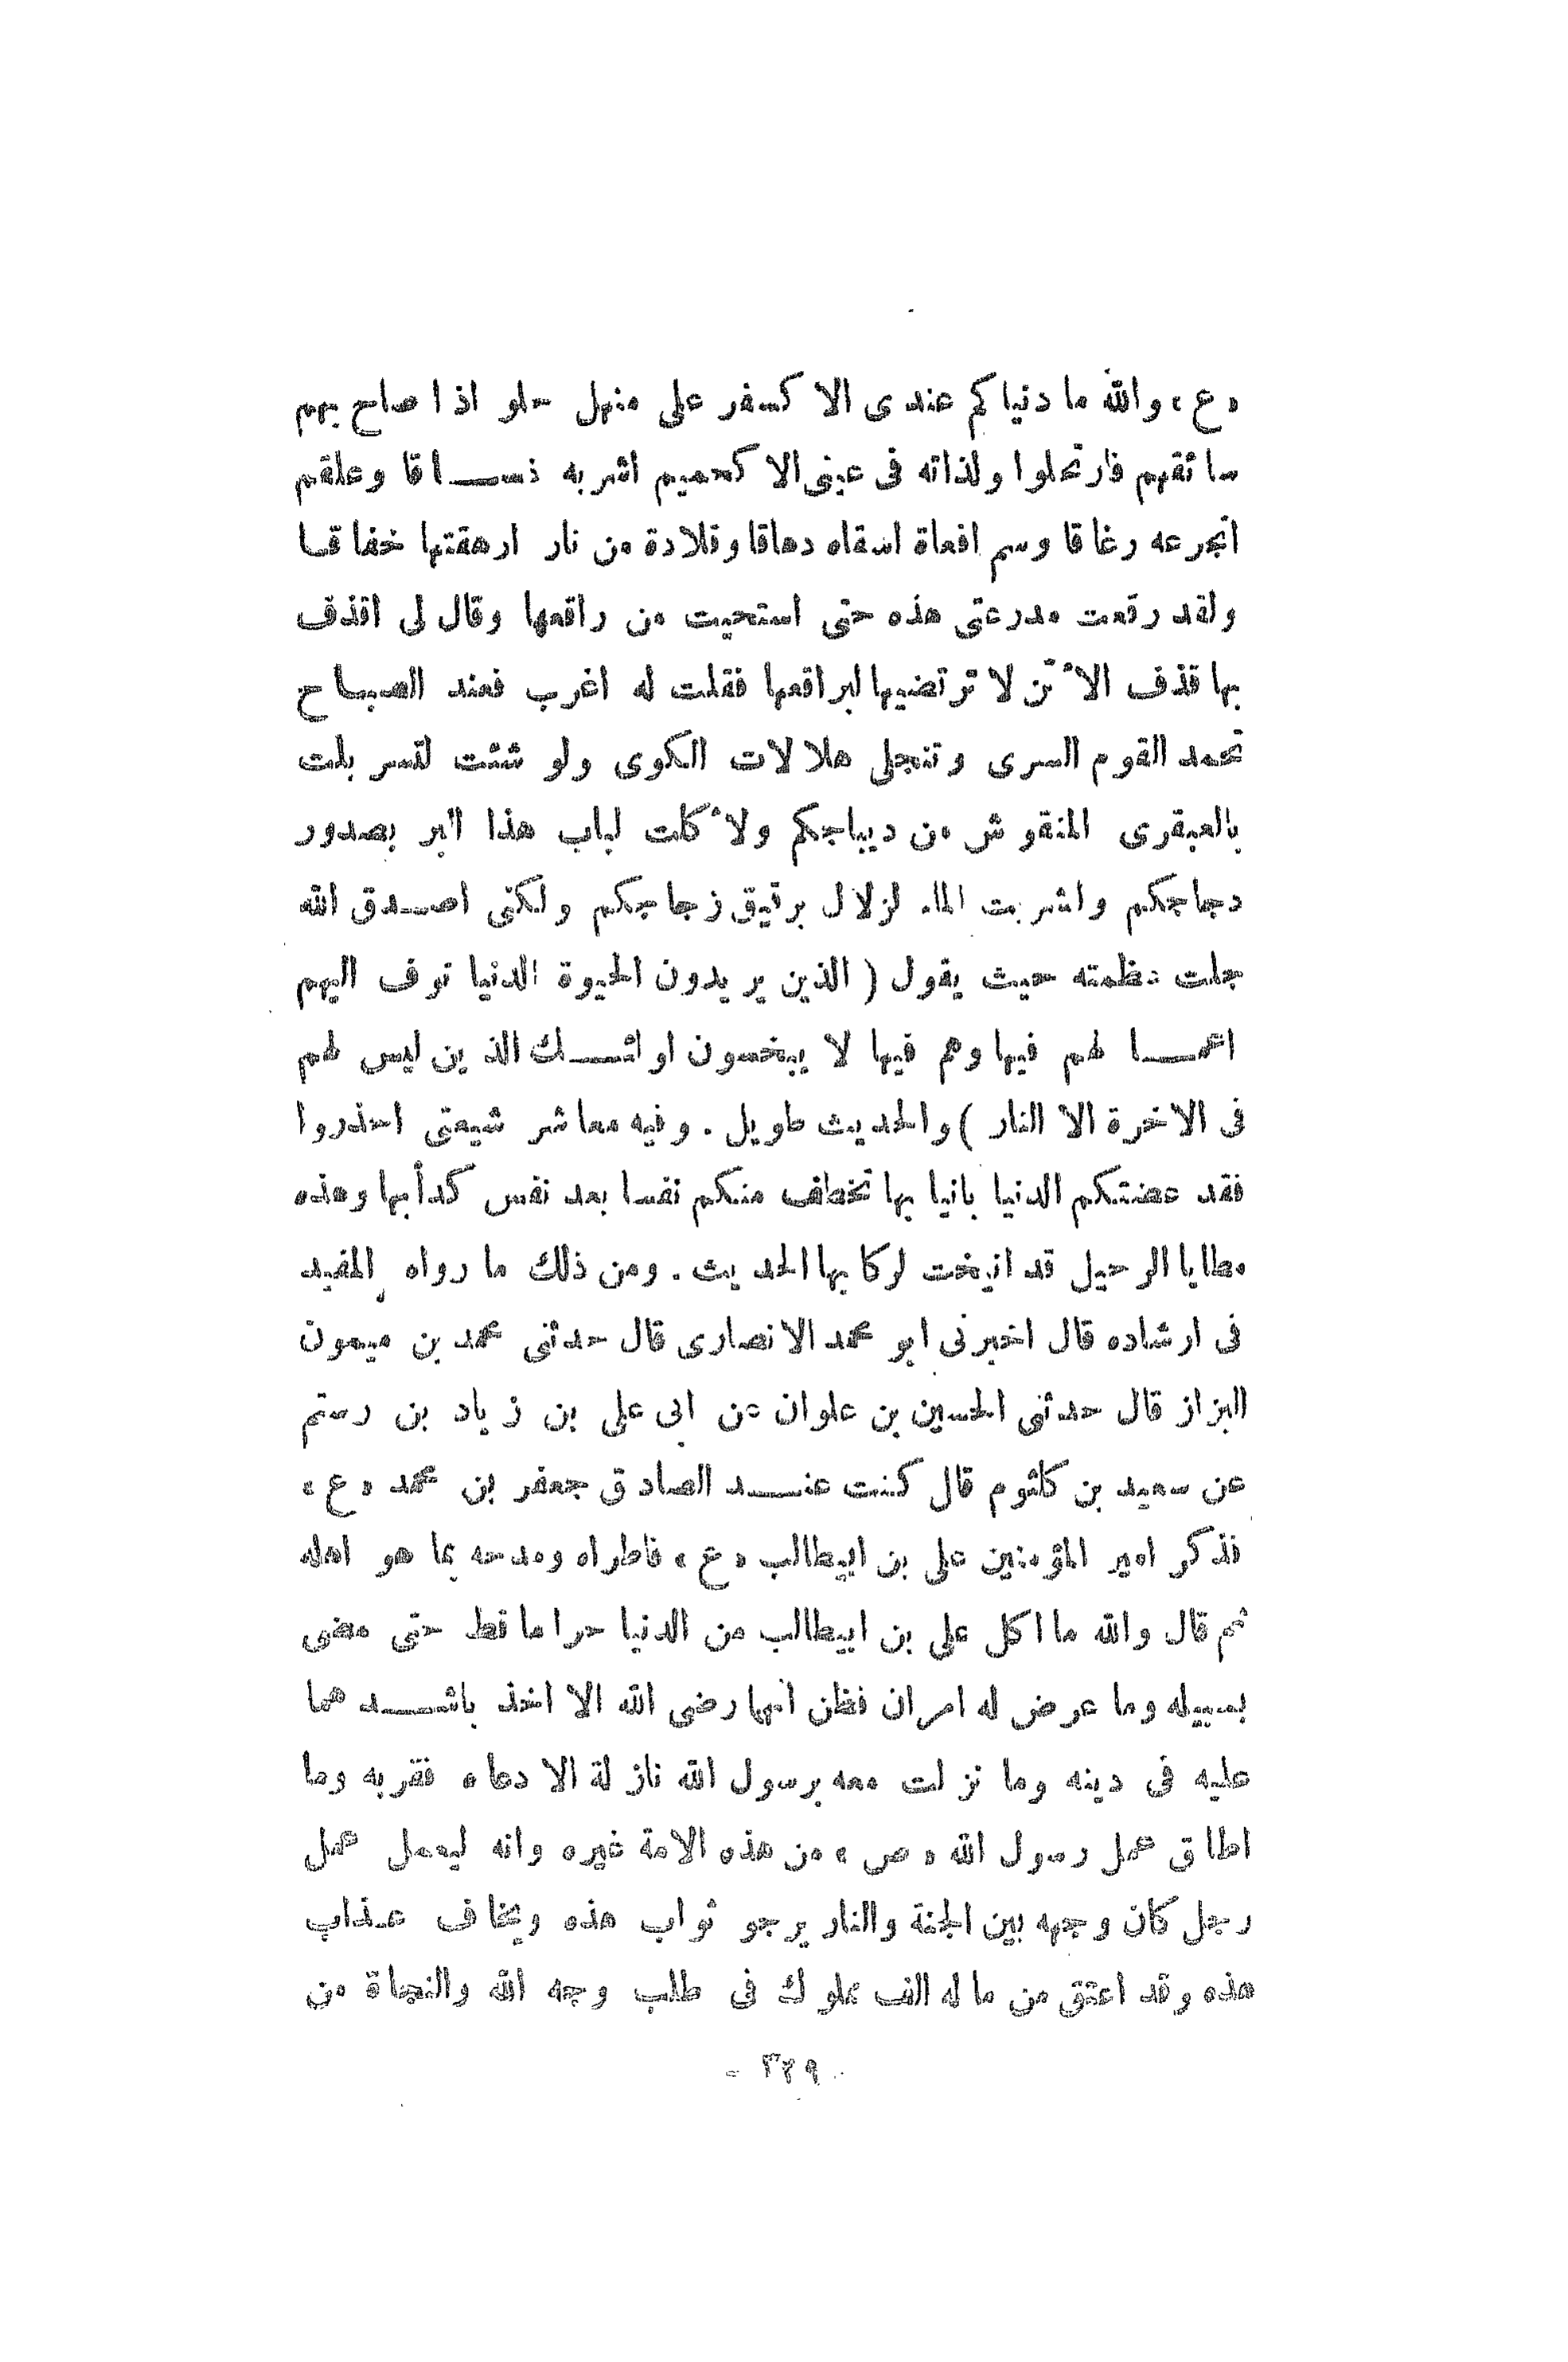 «ع» والله ما دنياكم عندى الا كسفر على منهل حلو اذا صاح بهم
سائقهم فارتحلوا ولذاته فى عينى الا كحميم اشربه غســاقا وعلقم
اتجرعه زغاقا وسم افعاة اسقاه دهاقا وقلادة من نار ارهقتها خفاقــا
ولقد رقعت مدرعتى هذه حتى استحيت من راقعها وقال لى اقذف
بها قذف الاُتن لا ترتضيها لبراقعها فقلت له اغرب فعند الصبــاح
تحمد القوم السرى وتنجلى علالات الكوى ولو شئت لتسربلت
بالعبقرى المنقوش من ديباجكم ولاُكلت لباب هذا البر بصدور
دجاجكم واشربت الماء لزلال برقيق زجاجكم ولكنى اصــدق الله
جلت عظمته حيث يقول ( الذين يريدون الحيوة الدنيا نوف اليهم
اعمــا لهم فيها وهم فيها لا يبخسون اولئــك الذين ليس لهم
فى الاخرة الا النار ) والحديث طويل . وفيه معاشر شيعتى احذروا
فقد عضتكم الدنيا بانيابها تخطف منكم نفسا بعد نفس كدأبها وهذه
مطايا الرحيل قد انيخت لركابها الحديث . ومن ذلك ما رواه المفيد
فى ارشاده قال اخبرنى ابو محمد الانصارى قال حدثنى محمد بن ميمون
البزاز قال حدثنى الحسين بن علوان عن ابى على بن زياد بن رستم
عن سعيد بن كلثوم قال كنت عنــد الصادق جعفر بن محمد «ع»
فذكر امير المؤمنين على بن ابيطالب «ع» فاطراه ومدحه بما هو اهله
ثم قال والله ما اكل على بن ابيطالب من الدنيا حراما قط حتى مضى
بسبيله وما عرض له امران فظن انهما رضى الله الا اخذ باشــدهما
عليه فى دينه وما نزلت معه برسول الله نازلة الا دعاه فقربه وما
اطاق عمل رسول الله «ص» من هذه الامة غيره وانه ليعمل عمل
رجل كان وجهه بين الجنة والنار يرجو ثواب هذه ويخاف عــذاب
هذه وقد اعتق من ماله الف مملوك فى طلب وجه الله والنجاة من
- ٣٢٩ -